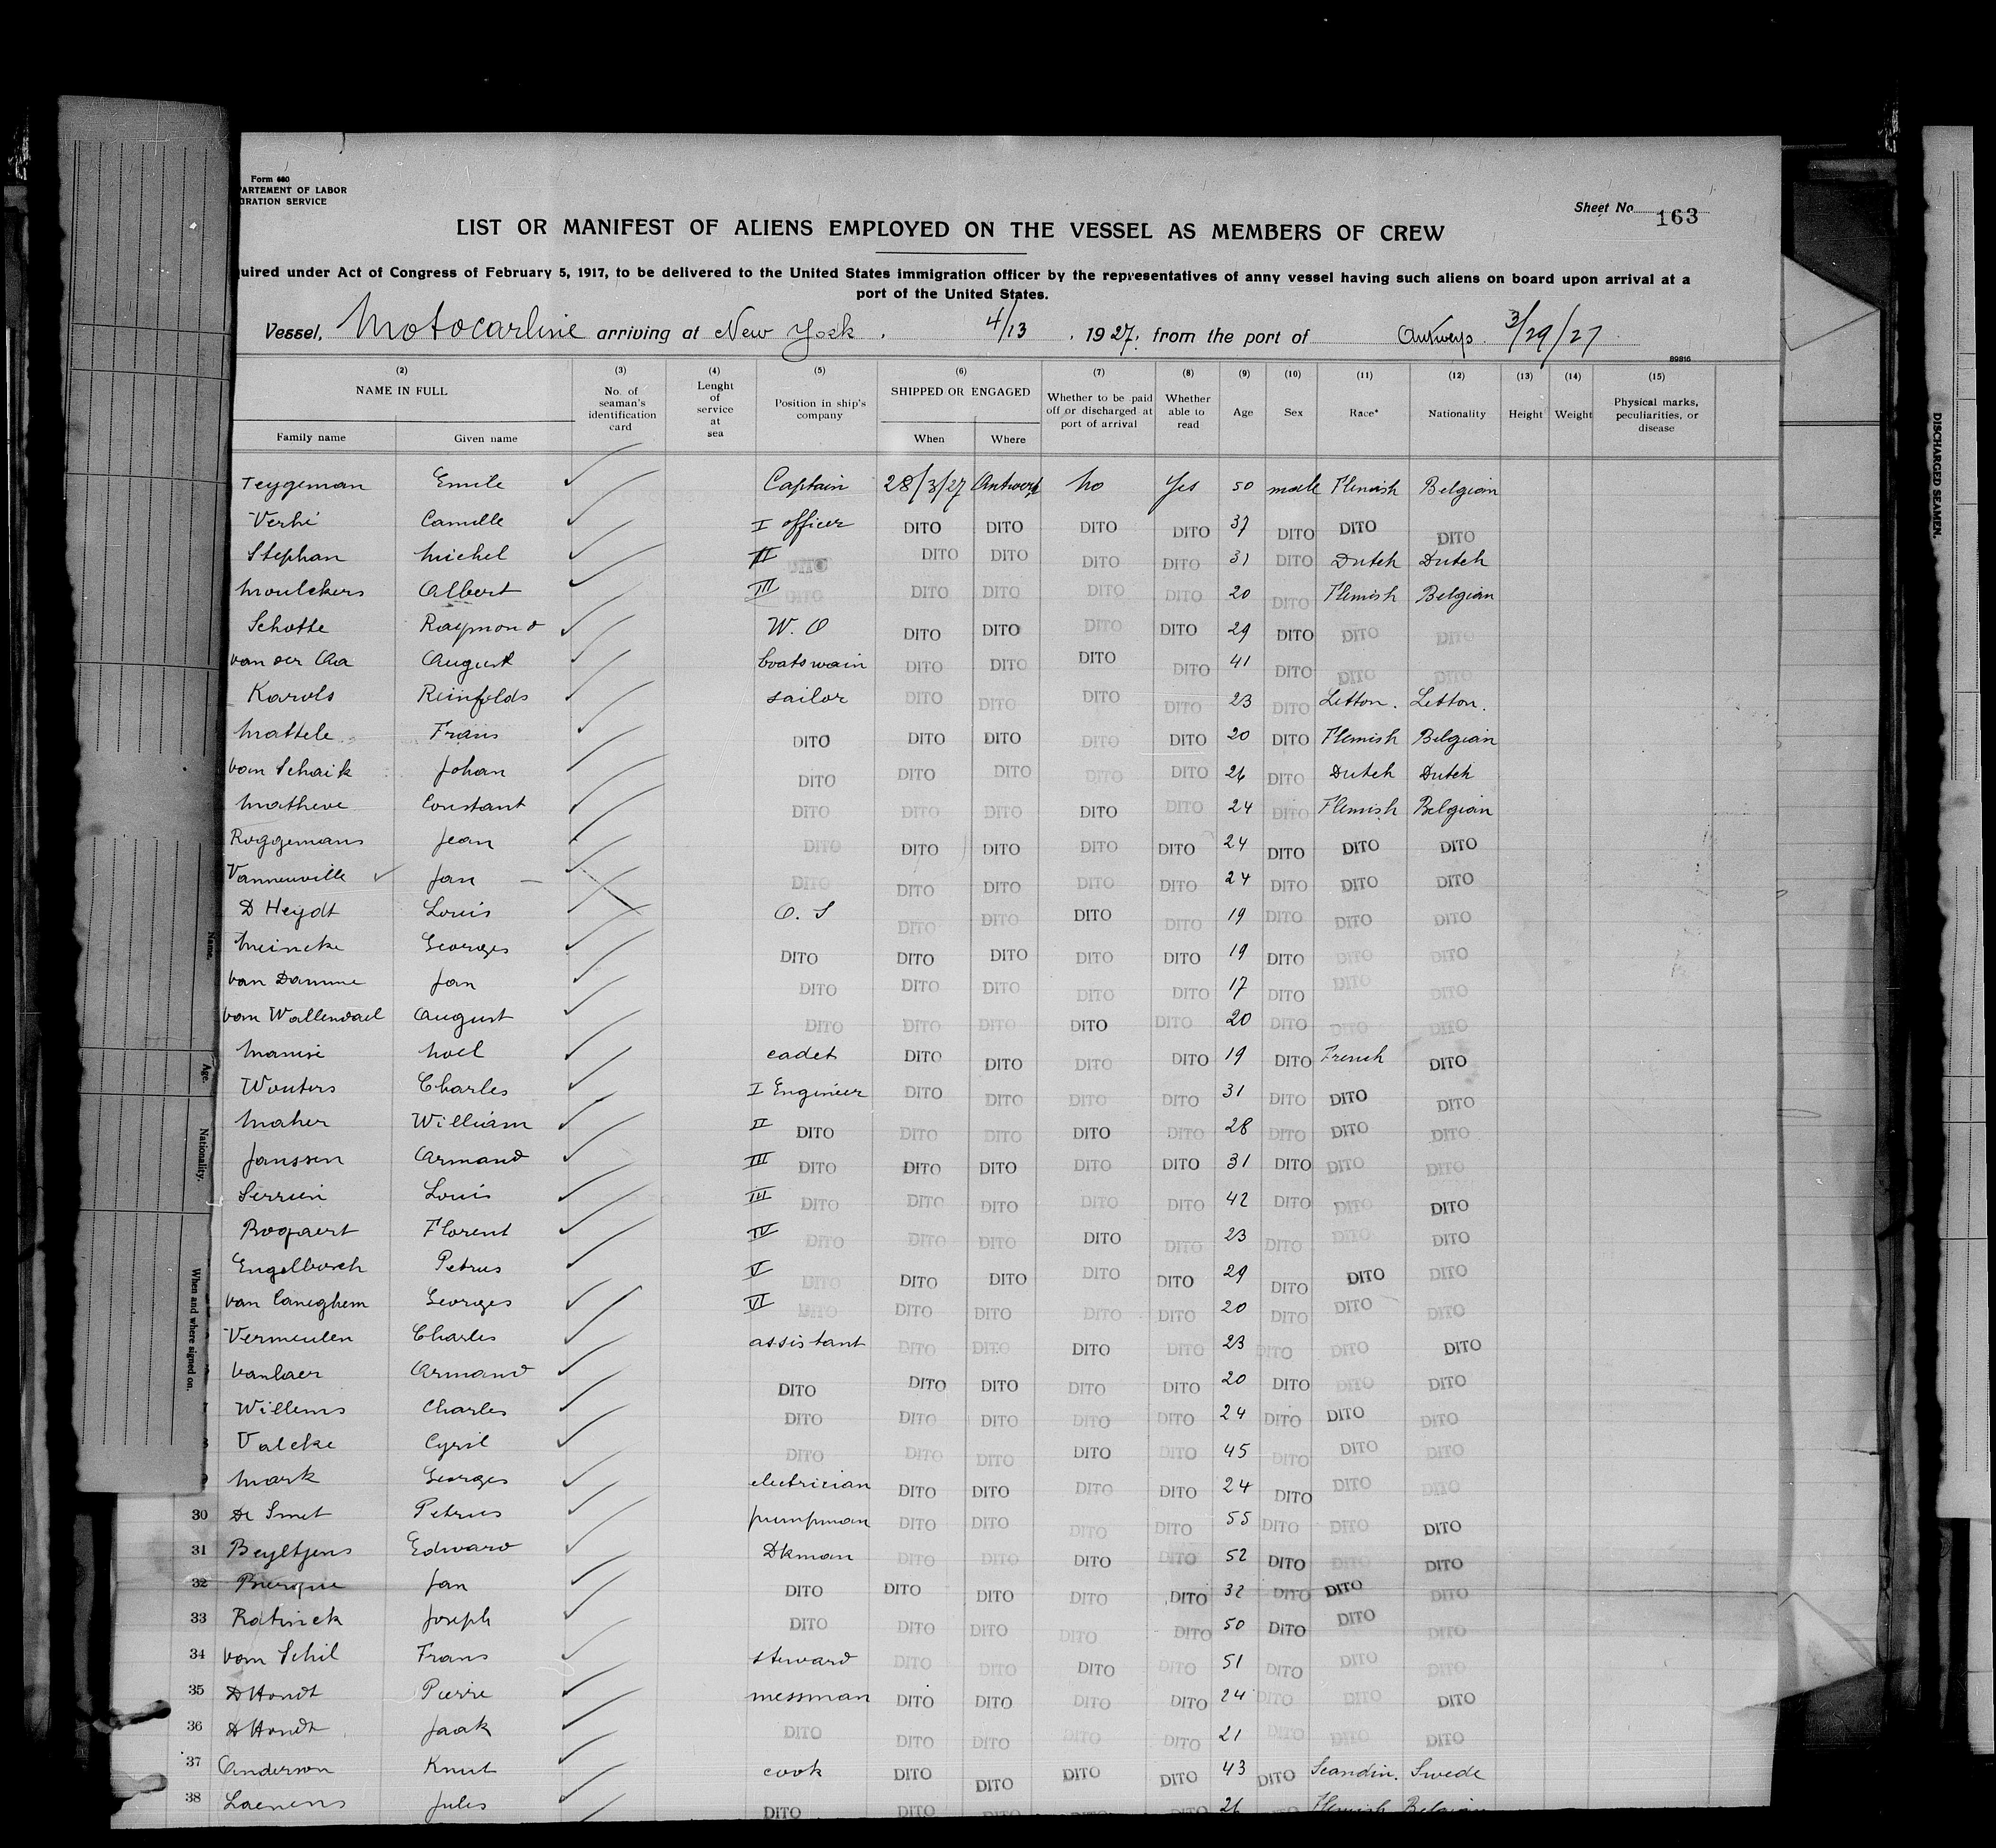 Form 680
PARTEMENT OF LABOR
GRATION SERVICE
Sheet No 163
LIST OR MANIFEST OF ALIENS EMPLOYED ON THE VESSEL AS MEMBERS OF CREW
uired under Act of Congress of February 5, 1917, to be delivered to the United States immigration officer by the representatives of anny vessel having such aliens on board upon arrival at a
port of the United States.
Vessel, Motocarline arriving at New York, 4/13, 1927, from the port of Antwerp 3/29/27
89816
(2) (3) (4) (5) (6) (7) (8) (9) (10) (11) (12) (13) (14) (15)
NAME IN FULL No. of seaman's identification card Lenght of service at sea Position in ship's company SHIPPED OR ENGAGED Whether to be paid off or discharged at port of arrival Whether able to read Age Sex Race* Nationality Height Weight Physical marks, peculiarities, or disease
Family name Given name When Where
Teygeman Emile Captain 28/3/27 Antwerp No Yes 50 male Flemish Belgian
Verhé Camille I officer DITO DITO DITO DITO 37 DITO DITO DITO
Stephan Michel II DITO DITO DITO DITO DITO 31 DITO Dutch Dutch
Moulckers Albert III DITO DITO DITO DITO DITO 20 DITO Flemish Belgian
Schotte Raymond W. O DITO DITO DITO DITO 29 DITO DITO DITO
van der Aa August boatswain DITO DITO DITO DITO 41 DITO DITO DITO
Karols Reinfolds sailor DITO DITO DITO DITO 23 DITO Letton. Letton.
Mattele Frans DITO DITO DITO DITO DITO 20 DITO Flemish Belgian
van Schaik Johan DITO DITO DITO DITO DITO 26 DITO Dutch Dutch
Matheve Constant DITO DITO DITO DITO DITO 24 DITO Flemish Belgian
Roggemans Jean DITO DITO DITO DITO DITO 24 DITO DITO DITO
Vanneuville Jan DITO DITO DITO DITO DITO 24 DITO DITO DITO
D Heydt Louis O. S DITO DITO DITO DITO 19 DITO DITO DITO
Meincke Georges DITO DITO DITO DITO DITO 19 DITO DITO DITO
van Damme Jan DITO DITO DITO DITO DITO 17 DITO DITO DITO
van Wallendael August DITO DITO DITO DITO DITO 20 DITO DITO DITO
Noel cadet DITO DITO DITO DITO 19 DITO French DITO
Wouters Charles I Engineer DITO DITO DITO DITO 31 DITO DITO DITO
Maher William II DITO DITO DITO DITO DITO 28 DITO DITO DITO
Janssen Armand III DITO DITO DITO DITO DITO 31 DITO DITO DITO
Serrien Louis III DITO DITO DITO DITO DITO 42 DITO DITO DITO
Bogaert Florent IV DITO DITO DITO DITO DITO 23 DITO DITO DITO
Engelborch Petrus V DITO DITO DITO DITO DITO 29 DITO DITO DITO
van Caneghem Georges VI DITO DITO DITO DITO DITO 20 DITO DITO DITO
Vermeulen Charles assistant DITO DITO DITO DITO 23 DITO DITO DITO
Vanlaer Armand DITO DITO DITO DITO DITO 20 DITO DITO DITO
Willems Charles DITO DITO DITO DITO DITO 24 DITO DITO DITO
Valcke Cyril DITO DITO DITO DITO DITO 45 DITO DITO DITO
Mark Georges electrician DITO DITO DITO DITO 24 DITO DITO DITO
30 De Smet Petrus pumpman DITO DITO DITO DITO 55 DITO DITO DITO
31 Beyltjens Edward Dkman DITO DITO DITO DITO 52 DITO DITO DITO
32 Jan DITO DITO DITO DITO DITO 32 DITO DITO DITO
33 Ratinck Joseph DITO DITO DITO DITO DITO 50 DITO DITO DITO
34 van Schil Frans steward DITO DITO DITO DITO 51 DITO DITO DITO
35 D Hondt Pierre messman DITO DITO DITO DITO 24 DITO DITO DITO
36 D Hondt Jaak DITO DITO DITO DITO DITO 21 DITO DITO DITO
37 Anderson Knut cook DITO DITO DITO DITO 43 DITO Scandin. Swede
38 Laenens Jules DITO DITO DITO DITO DITO 26 Flemish Belgian
Name.
Age.
Nationality.
When and where signed on.
DISCHARGED SEAMEN.